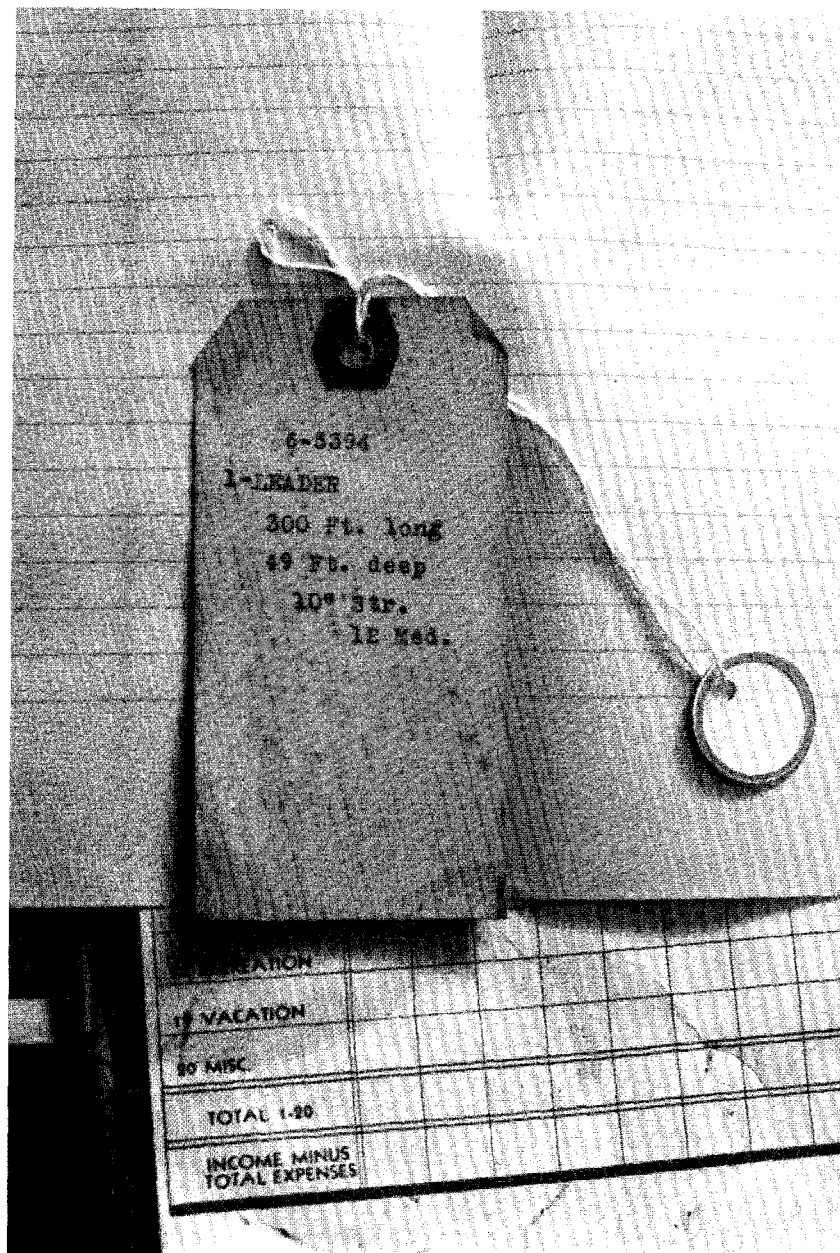 6-5394
1-LEADER
300 Ft. long
49 Ft. deep
10" Str.
12 Med.
19 VACATION
20 MISC.
TOTAL 1-20
INCOME MINUS
TOTAL EXPENSES